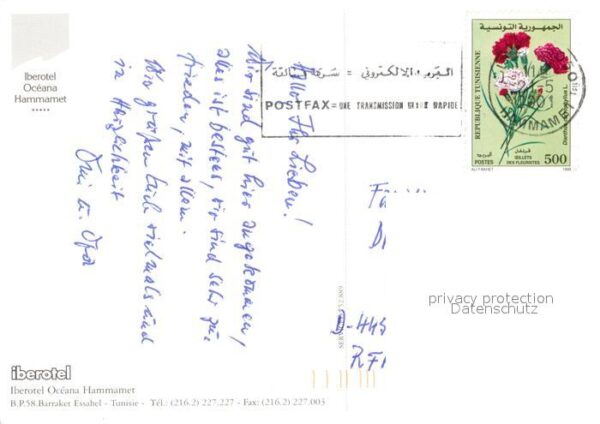 Iberotel
Océana
Hammamet
*****
Hallo Ihr Lieben!
Wir sind gut hier angekommen,
alles ist bestens, wir sind sehr zu-
frieden, mit allem.
Wir grüßen Euch vielmals und
in Herzlichkeit
Omi u. Opa
البريد الالكتروني =
POSTFAX = UNE TRANSMISSION RAPIDE
الجمهورية التونسية
REPUBLIQUE TUNISIENNE
HAMMAMET
قرنفل
البريد
POSTES
OEILLETS
DES FLEURISTES
500
D-445
privacy protection
Datenschutz
iberotel
Iberotel Océana Hammamet
B.P.58.Barraket Essahel - Tunisie - Tél.: (216.2) 227.227 - Fax: (216.2) 227.003